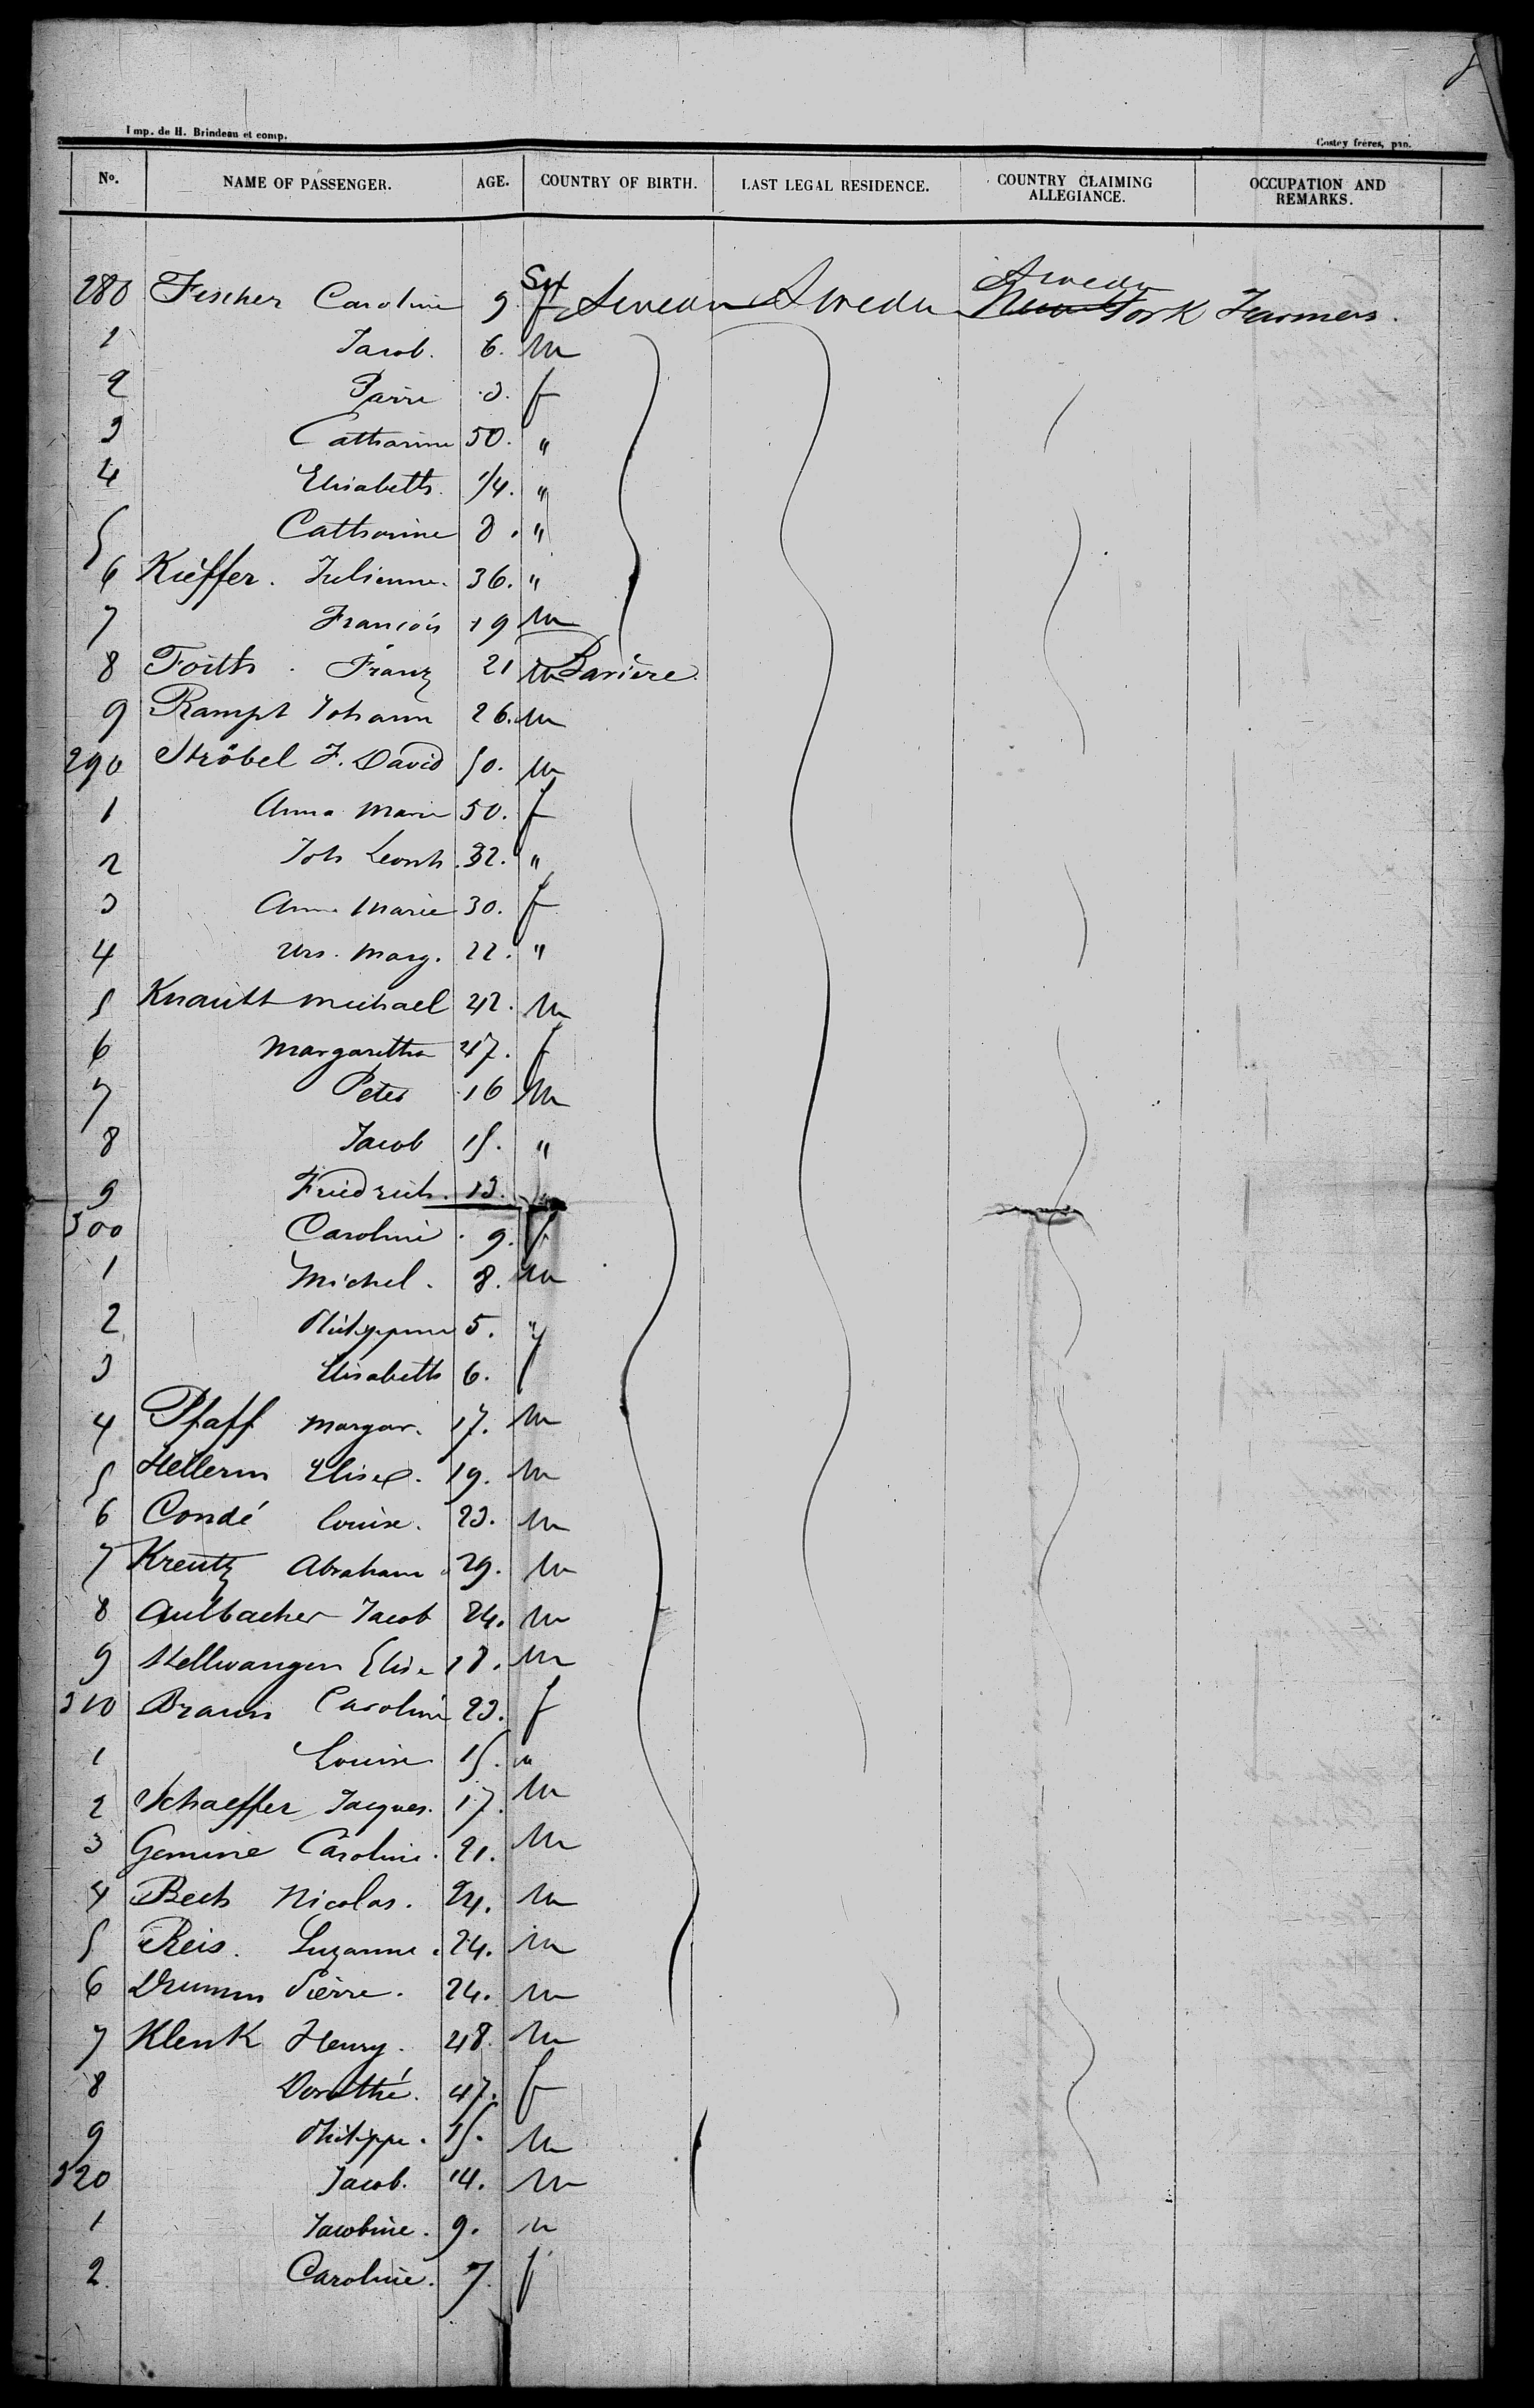 Imp. de H. Brindeau et comp.
Costey frères, pap.
No. NAME OF PASSENGER. AGE. COUNTRY OF BIRTH. LAST LEGAL RESIDENCE. COUNTRY CLAIMING ALLEGIANCE. OCCUPATION AND REMARKS.
Sweden
280 Fischer Caroline 9. f Sweden Sweden New York Farmers.
1 Jacob. 6. m
2 3. f
3 Catharine 50. "
4 Elisabeth. 1/4. "
5 Catharine 8. "
6 Kieffer. Julienne. 36. "
7 François 19 m
8 Foith. Franz 21 m Bavière.
9 Rampt Johann 26. m
290 Ströbel J. David 50. m
1 Anna Marie 50. f
2 Joh Leonh. 32. "
3 Anna Marie 30. f
4 Urs. Marg. 22. "
5 Michael 42. m
6 Margaretha 47. f
7 Peter 16 m
8 Jacob 15. "
9 Friedrich. 13.
300 Caroline. 9. f
1 Michel. 8. m
2 Philippine 5. "
3 Elisabeth 6. f
4 Pfaff Margar. 17. m
5 Hellerin Elise. 19. m
6 Condé Louise. 23. m
7 Kreutz Abraham 29. m
8 Aulbacher Jacob 24. m
9 Hellwangen Elise 18. m
310 Braun Caroline 23. f
1 Louise 15. "
2 Schaeffer Jacques. 17. m
3 Gemine Caroline. 21. m
4 Bech Nicolas. 24. m
5 Reis. Suzanne. 24. m
6 Drumm Pierre. 24. m
7 Klenk Henry. 48. m
8 Dorothé. 47. f
9 Philippe. 15. m
320 Jacob. 14. m
1 Jacobine. 9.
2. Caroline. 7. f